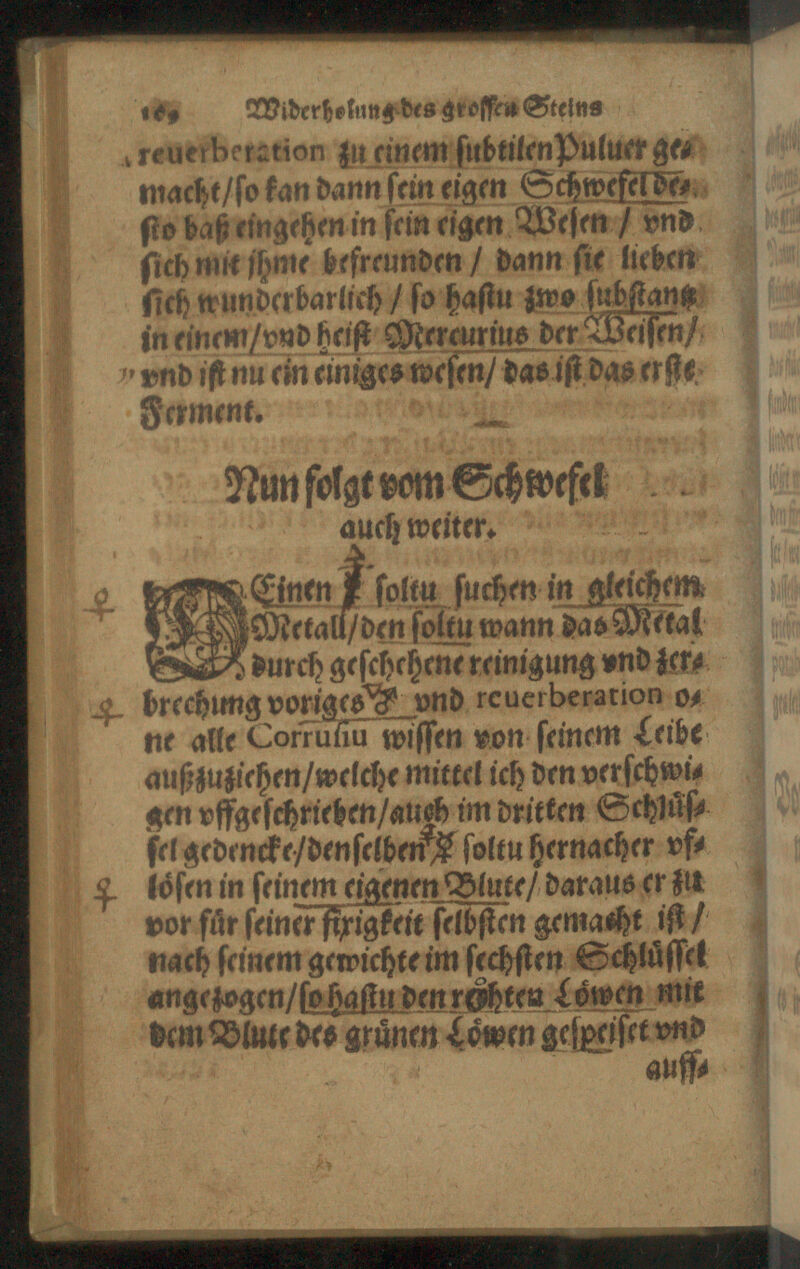 Widerholung des grossen Steins
reuerberation zu einem ſubtilen Puluer ge⸗
macht/ſo kan dann ſein eigen Schwefel de⸗
ſto baß eingehen in ſein eigen Weſen / vnd
ſich mit jhme befreunden / dann ſie lieben
ſich wunderbarlich / ſo haſtu zwo ſubſtantz
in einem/vnd heiſt Mercurius der Weiſen/
vnd iſt nu ein einiges weſen/ das iſt das erſte
Ferment.
Nun folgt vom Schwefel
auch weiter.
Einen ſoltu ſuchen in gleichem
Metall/den ſoltu wann das Metal
durch geſchehene reinigung vnd zer⸗
brechung voriges vnd reuerberation o⸗
ne alle Corruſiu wiſſen von ſeinem Leibe
außzuziehen/welche mittel ich den verſchwi⸗
gen vffgeſchrieben/auch im dritten Schlüſ⸗
ſel gedencke/denſelben ſoltu hernacher vf⸗
löſen in ſeinem eigenen Blute/ daraus er zu
vor für ſeiner fixigkeit ſelbſten gemacht iſt /
nach ſeinem gewichte im ſechſten Schlüſſel
angezogen/ſo haſtu den rohten Löwen mit
dem Blute des grünen Löwen geſpeiſet vnd
auff⸗